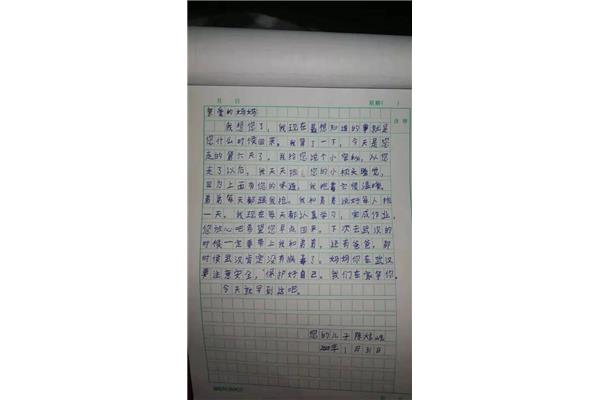 月 日 星期( )
亲爱的妈妈
我想您了,我现在最想知道的事就是
您什么时候回来。我算了一下,今天是您
走的第六天了。我给您说个小秘密,从您
走了以后,我天天抱 您的小枕头睡觉,
因为上面有您的味道,我抱着它很温暖。
弟弟每天都跟我抢。我和弟弟说好每人抱
一天。我现在每天都认真学习,完成作业,
您放心吧希望您早点回来。下次去武汉的
时候一定要带上我和弟弟,还有爸爸,那
时候武汉肯定没有病毒了。妈妈你在武汉
要注意安全,保护好自己。我们在家等你。
今天就写到这吧。
您的儿子 陈
2020年 1月31日